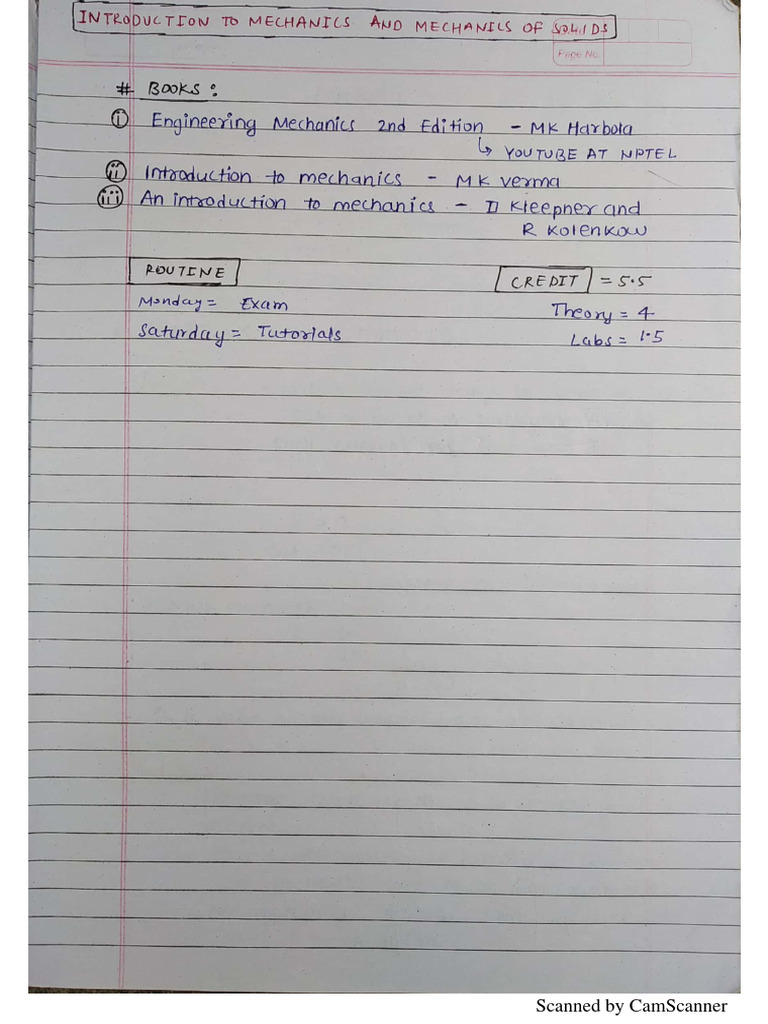 INTRODUCTION TO MECHANICS AND MECHANICS OF SOLIDS
Page No.
# BOOKS:
(i) Engineering Mechanics 2nd Edition - MK Harbola
↳ YOUTUBE AT NPTEL
(ii) Introduction to mechanics - MK Verma
(iii) An introduction to mechanics - D Kleepner and
R Kolenkow
ROUTINE
CREDIT = 5.5
Monday = Exam
Theory = 4
Saturday = Tutorials
Labs = 1.5
Scanned by CamScanner